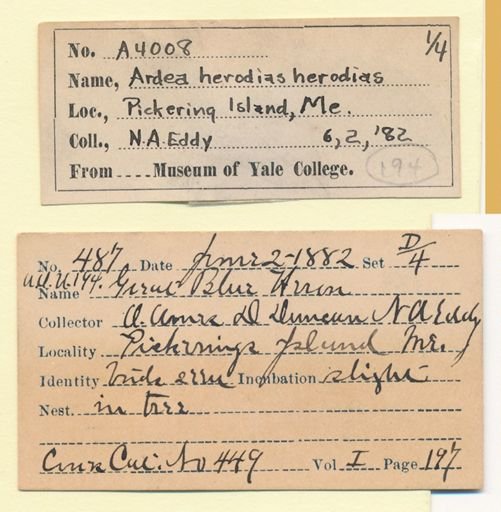 No. A4008 1/4
Name, Ardea herodias herodias
Loc., Pickering Island, Me.
Coll., N.A. Eddy 6, 2, '82
From .... Museum of Yale College. 194
No. 487 Date June 2-1882 Set D/4
A.O.U. 194.
Name Great Blue Heron
Collector O. Ames D Duncan N A Eddy
Locality Pickerings Island Me.
Identity birds seen Incubation slight
Nest. in tree
Cat. No 449 Vol I Page 197